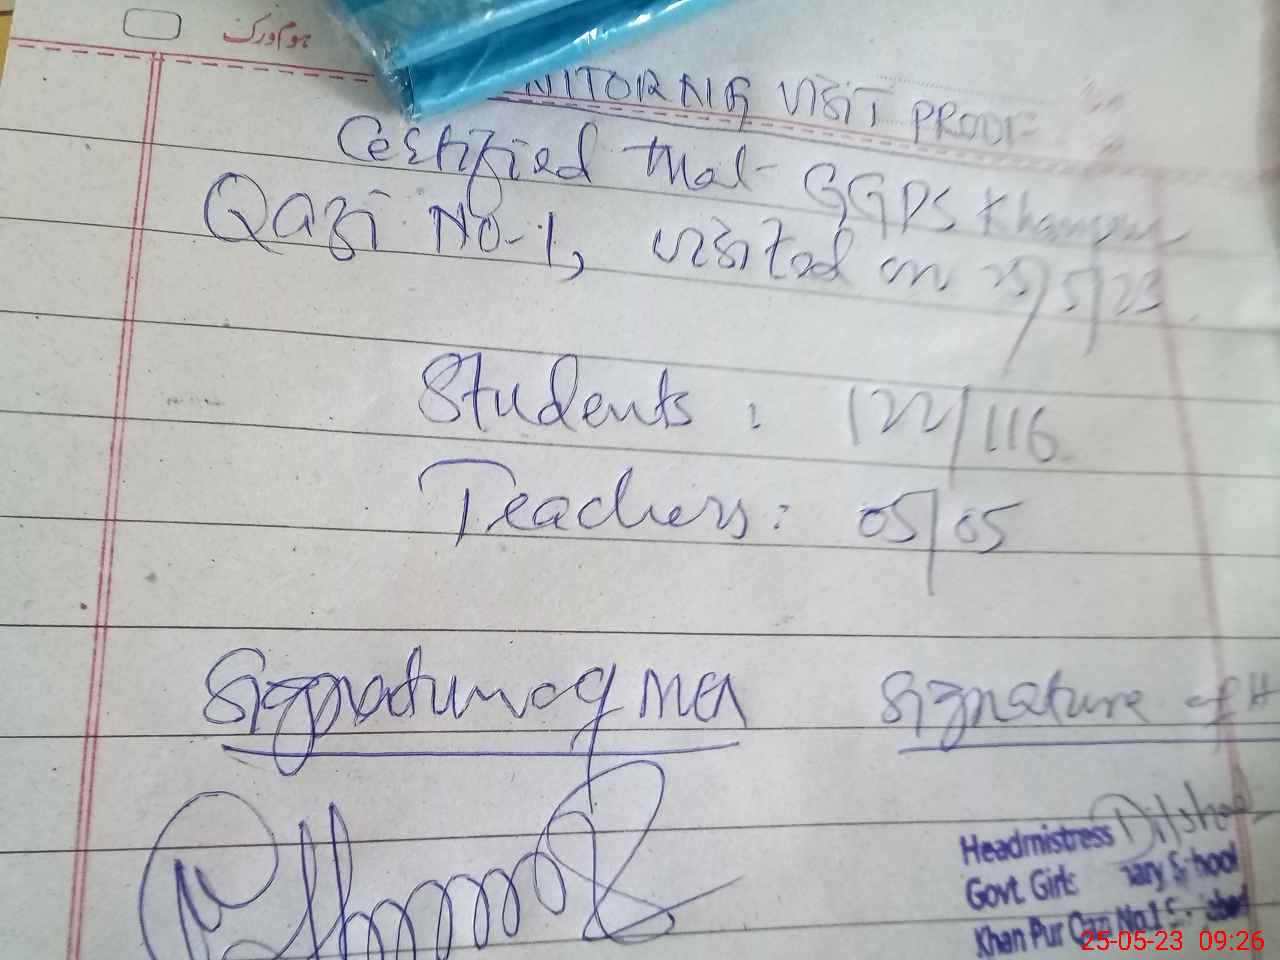 ہوم ورک
NITORNIG VISIT PROOF
Certified that GGPS Khanpur
Qazi No-1, visited on 25/5/23.
Students : 122/116
Teachers : 05/05
Signature of MEA
Signature of H
Dilshad
Headmistress
Govt. Girls School
Khan Pur Qazi No.1
25-05-23 09:26